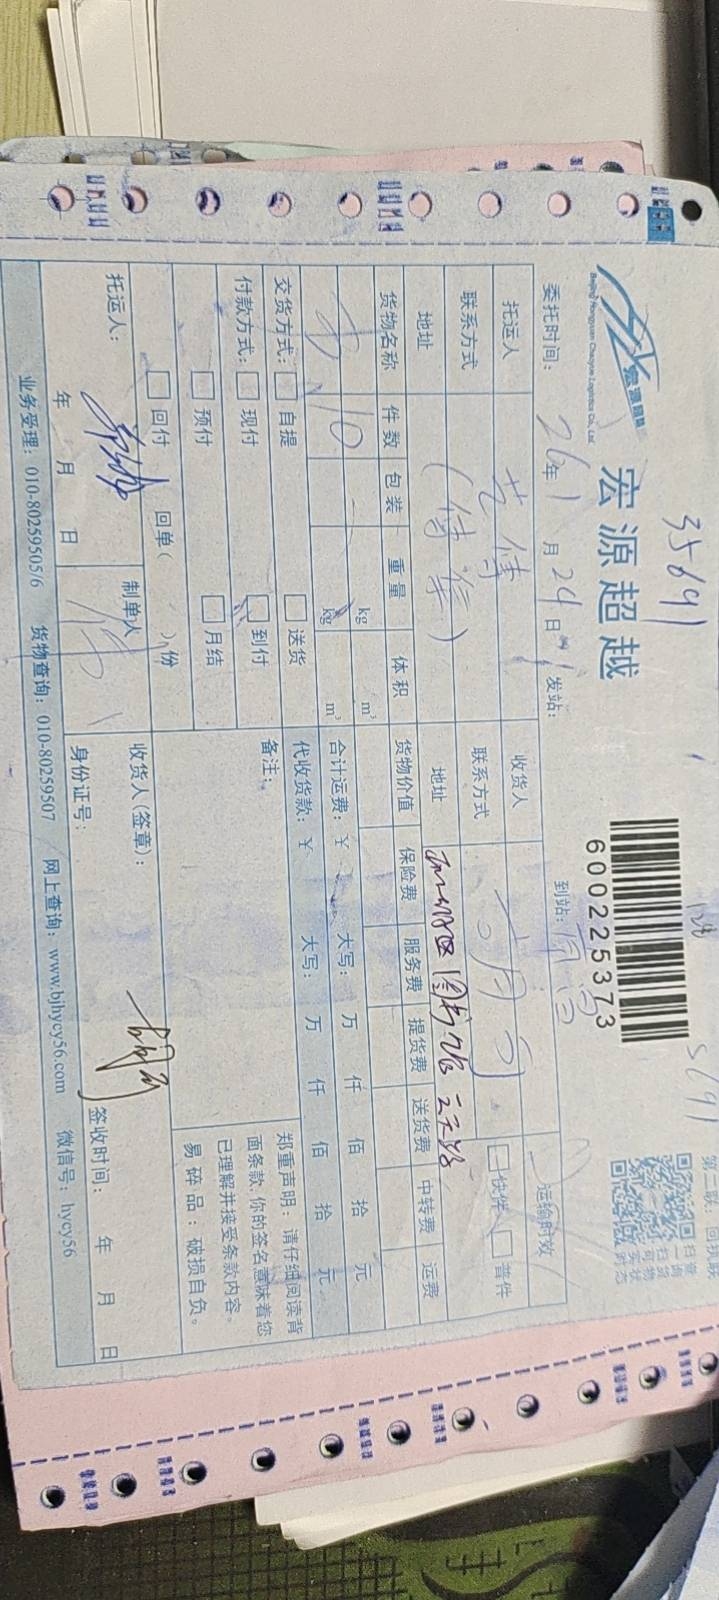 35691
宏源超越
宏源超越
Beijing Hongyuan Chaoyue Logistics Co., Ltd.
600225373
5691
委托时间: 26年1月24日 发站: 到站:
托运人 艺倩 收货人 运输时效
联系方式 联系方式 快件 普件
地址 地址
货物名称 件数 包装 重量 体积 货物价值 保险费 服务费 提货费 送货费 中转费 运费
书 10 kg m³ 合计运费: ¥ 大写: 万 仟 佰 拾 元
kg m³ 代收货款: ¥ 大写: 万 仟 佰 拾 元
交货方式: 自提 送货 备注:
付款方式: 现付 到付
预付 月结
回付 回单( )份
郑重声明:请仔细阅读背面条款,你的签名意味着您已理解并接受条款内容。
易碎品:破损自负。
托运人: 制单人 收货人(签章):
年 月 日 身份证号: 签收时间: 年 月 日
业务受理: 010-80259505/6 货物查询: 010-80259507 网上查询: www.bjhycy56.com 微信号: hycy56